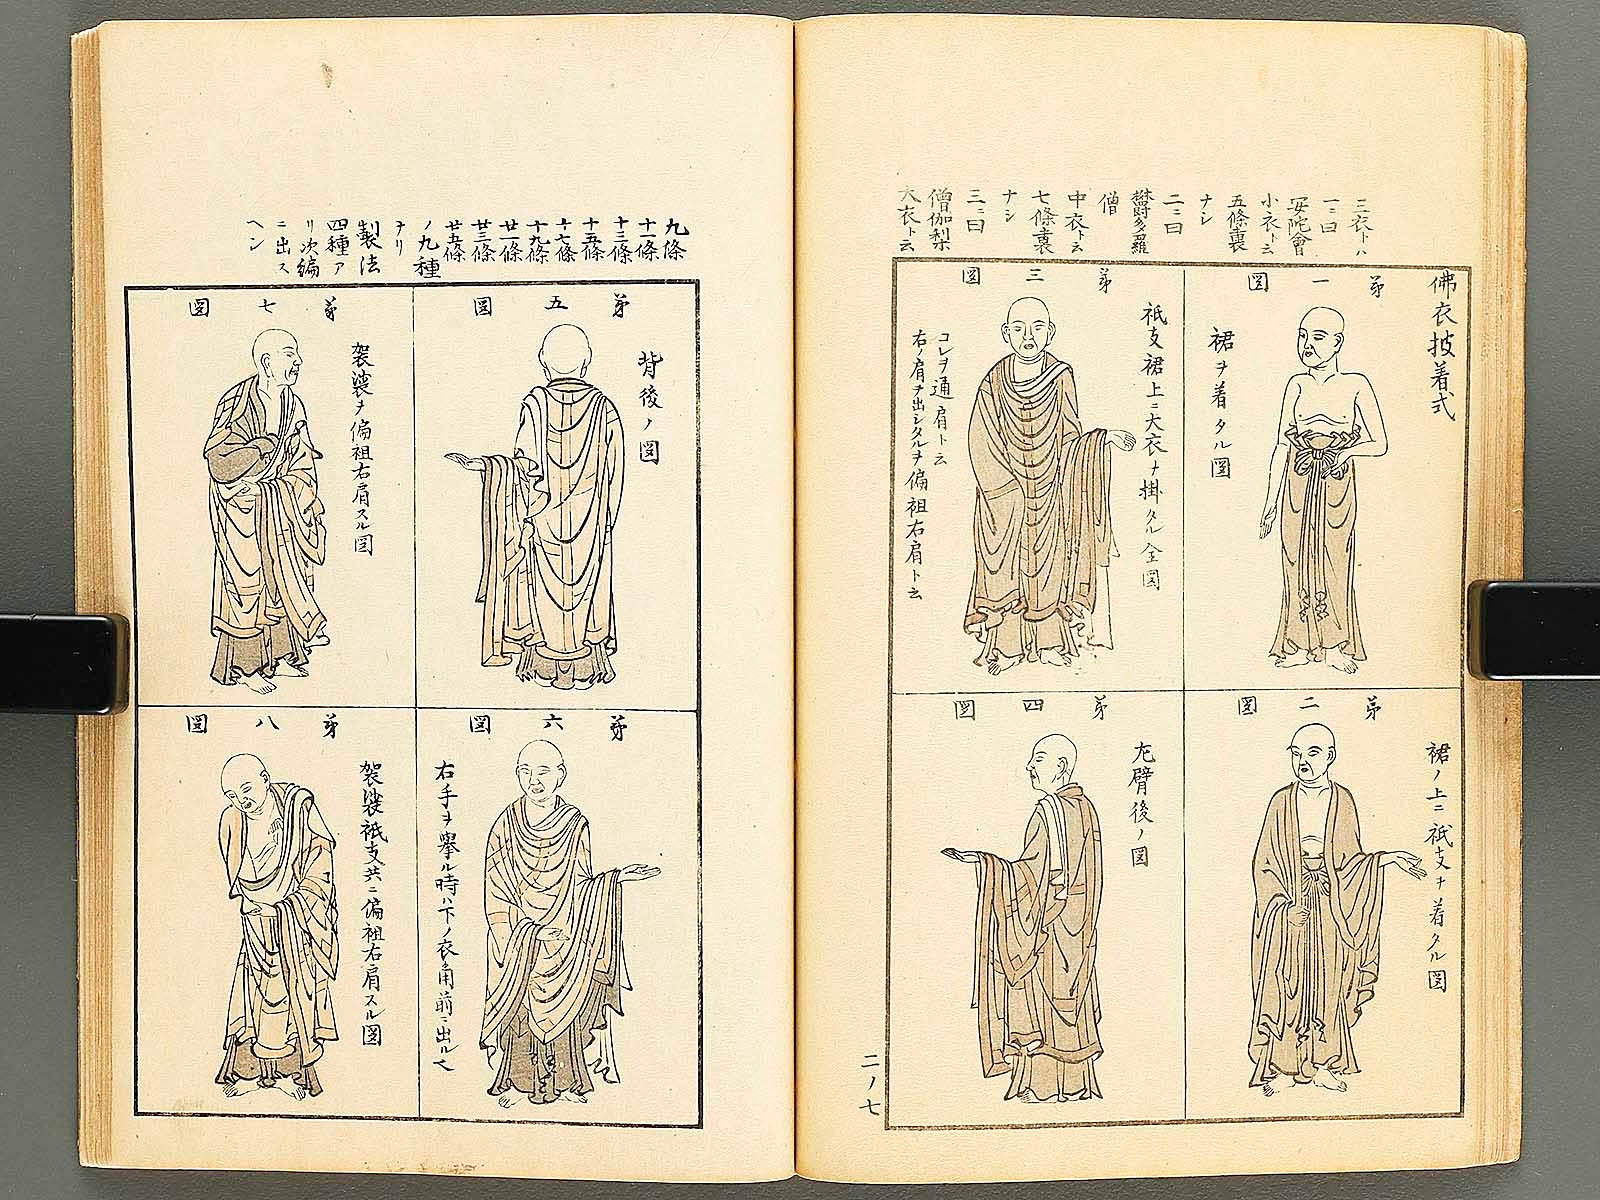 三衣トハ
一ニ曰
安陀會
小衣ト云
五條裏
ナシ
二ニ曰
欝多羅
僧
中衣ト云
七條裏
ナシ
三ニ曰
僧伽梨
大衣ト云
佛衣披着式
第一図
裙ヲ着タル図
第二図
裙ノ上ニ祇支ヲ着タル図
第三図
祇支裙上ニ大衣ヲ掛タル全図
コレヲ通肩ト云
右ノ肩ヲ出シタルヲ偏袒右肩ト云
第四図
左臂後ノ図
二ノ七
九條
十一條
十三條
十五條
十七條
十九條
廿一條
廿三條
廿五條
ノ九種
ナリ
製法
四種ア
リ次編
ニ出ス
ヘシ
第五図
背後ノ図
第六図
右手ヲ擧ル時ハ下ノ衣角前ニ出ル也
第七図
袈裟ヲ偏袒右肩スル図
第八図
袈裟祇支共ニ偏袒右肩スル図